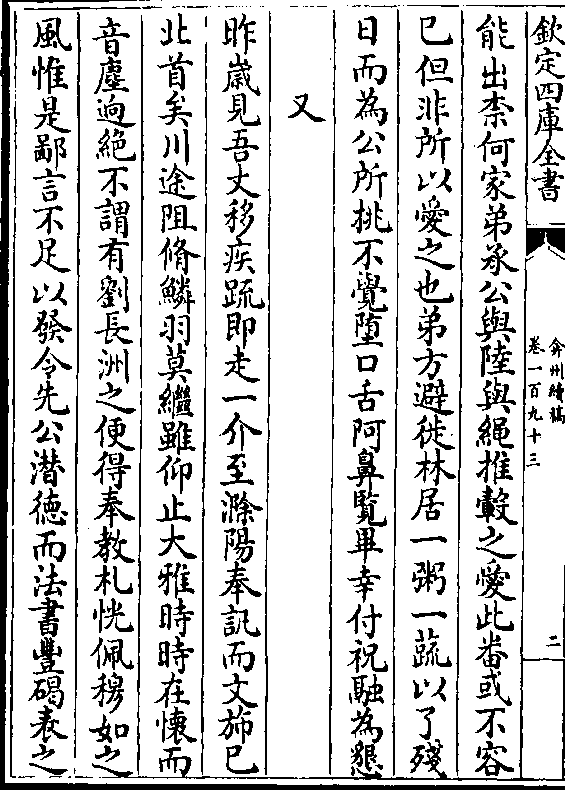 欽定四庫全書
弇州續稿
卷一百九十三
二
能出柰何家弟承公與陸與繩推轂之愛此畨或不容
已但非所以愛之也弟方避徙林居一粥一蔬以了殘
日而為公所挑不覺墮口舌阿鼻覧畢幸付祝融為懇
又
昨嵗見吾丈移疾疏即走一介至滁陽奉訊而文斾已
北首矣川途阻脩鱗羽莫繼雖仰止大雅時時在懷而
音塵逈絶不謂有劉長洲之便得奉教札恍佩穆如之
風惟是鄙言不足以發令先公潜徳而法書豐碣表之